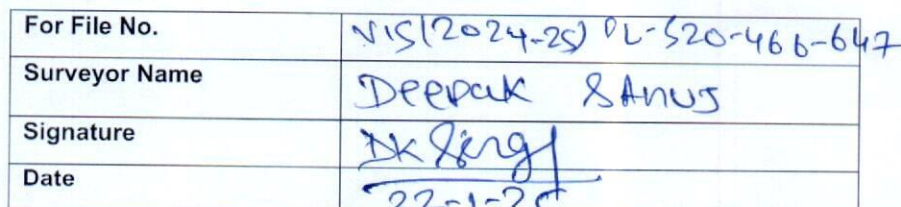 For File No. VIS(2024-25) PL-520-466-647
Surveyor Name Deepak & Anuj
Signature DK Singh
Date 22-1-25